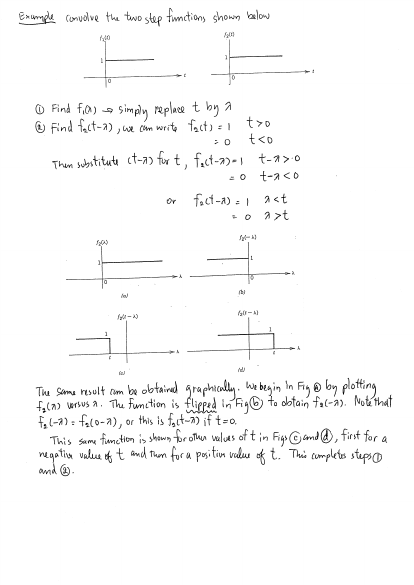 Example convolve the two step functions shown below
f₁(t) f₂(t)
1 1
t t
0 0
① Find f₁(λ) → simply replace t by λ
② Find f₂(t-λ), we can write f₂(t) = 1 t>0
= 0 t<0
Then substitute (t-λ) for t, f₂(t-λ)=1 t-λ>0
= 0 t-λ<0
or f₂(t-λ) = 1 λ<t
= 0 λ>t
f₂(λ) f₂(-λ)
1 1
λ λ
0 0
(a) (b)
f₂(t - λ) f₂(t - λ)
1 1
t λ t λ
(c) (d)
The same result can be obtained graphically. We begin in Fig ⓐ by plotting
f₂(λ) versus λ. The function is flipped in Fig ⓑ to obtain f₂(-λ). Note that
f₂(-λ) = f₂(0-λ), or this is f₂(t-λ) if t=0.
This same function is shown for other values of t in Figs ⓒ and ⓓ, first for a
negative value of t and then for a positive value of t. This completes steps ①
and ②.